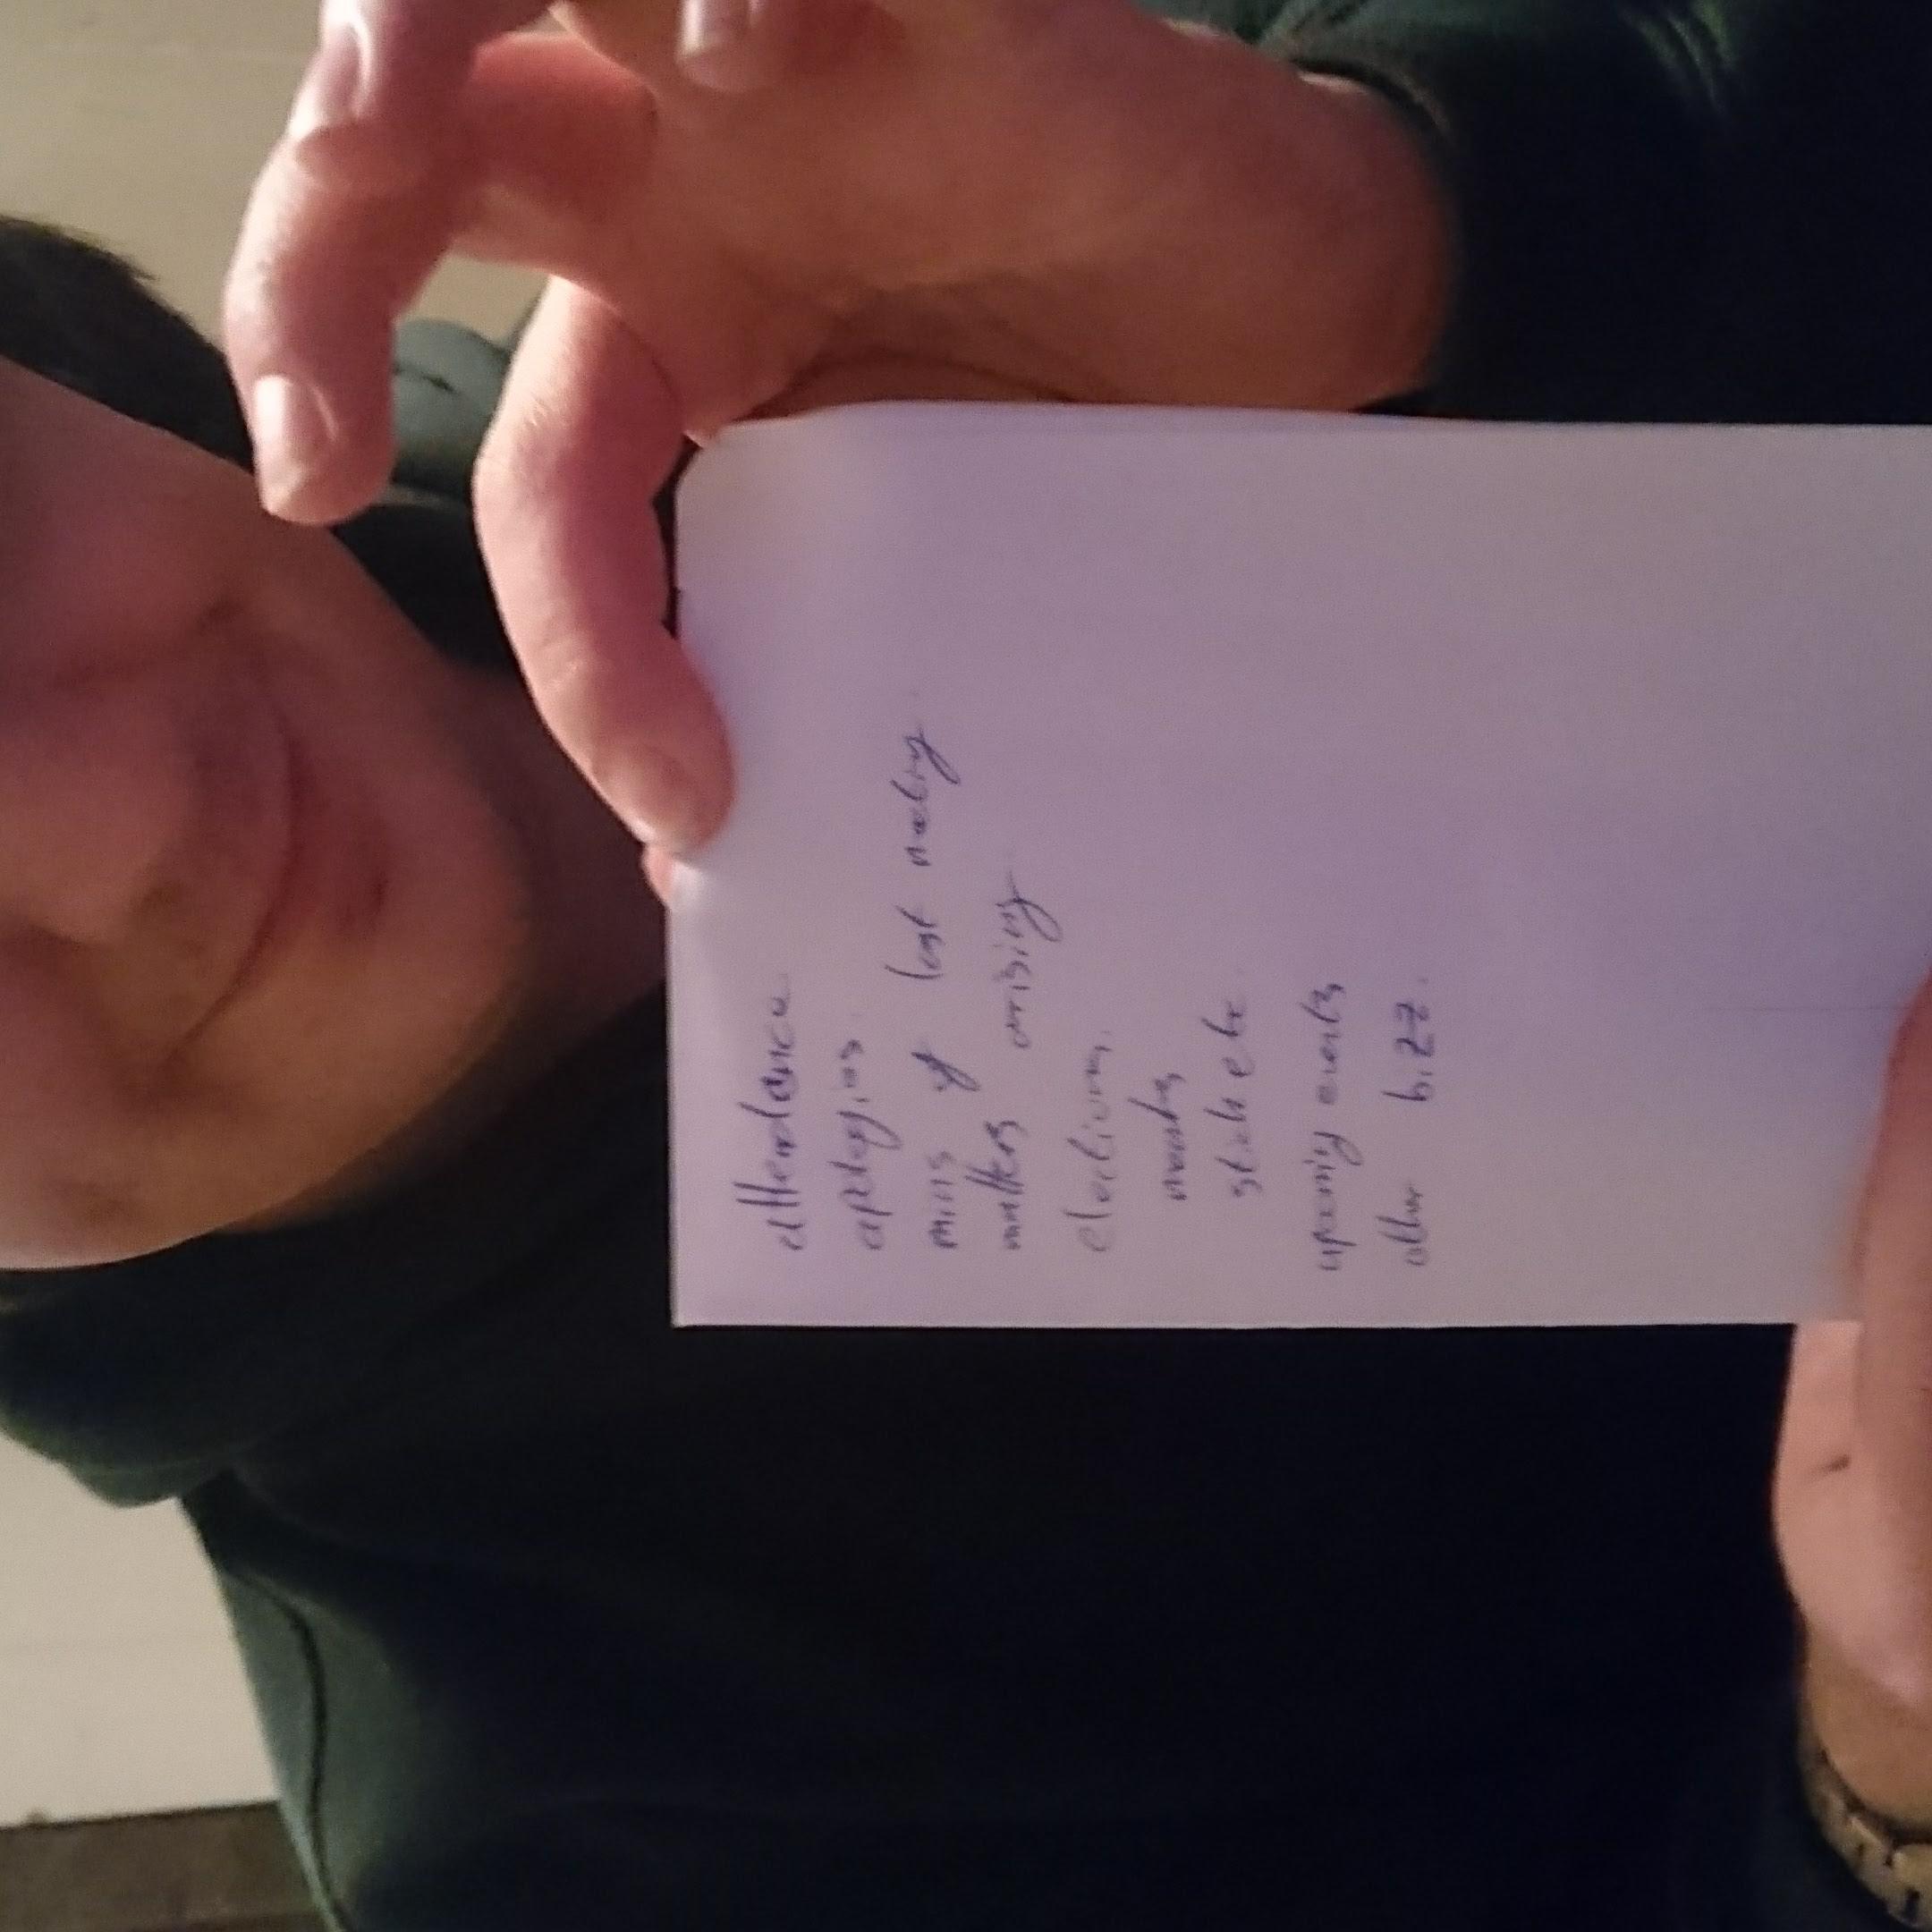 attendance
apologies.
mins of last meeting
matters arising
elections.
upcoming events
other bizz.